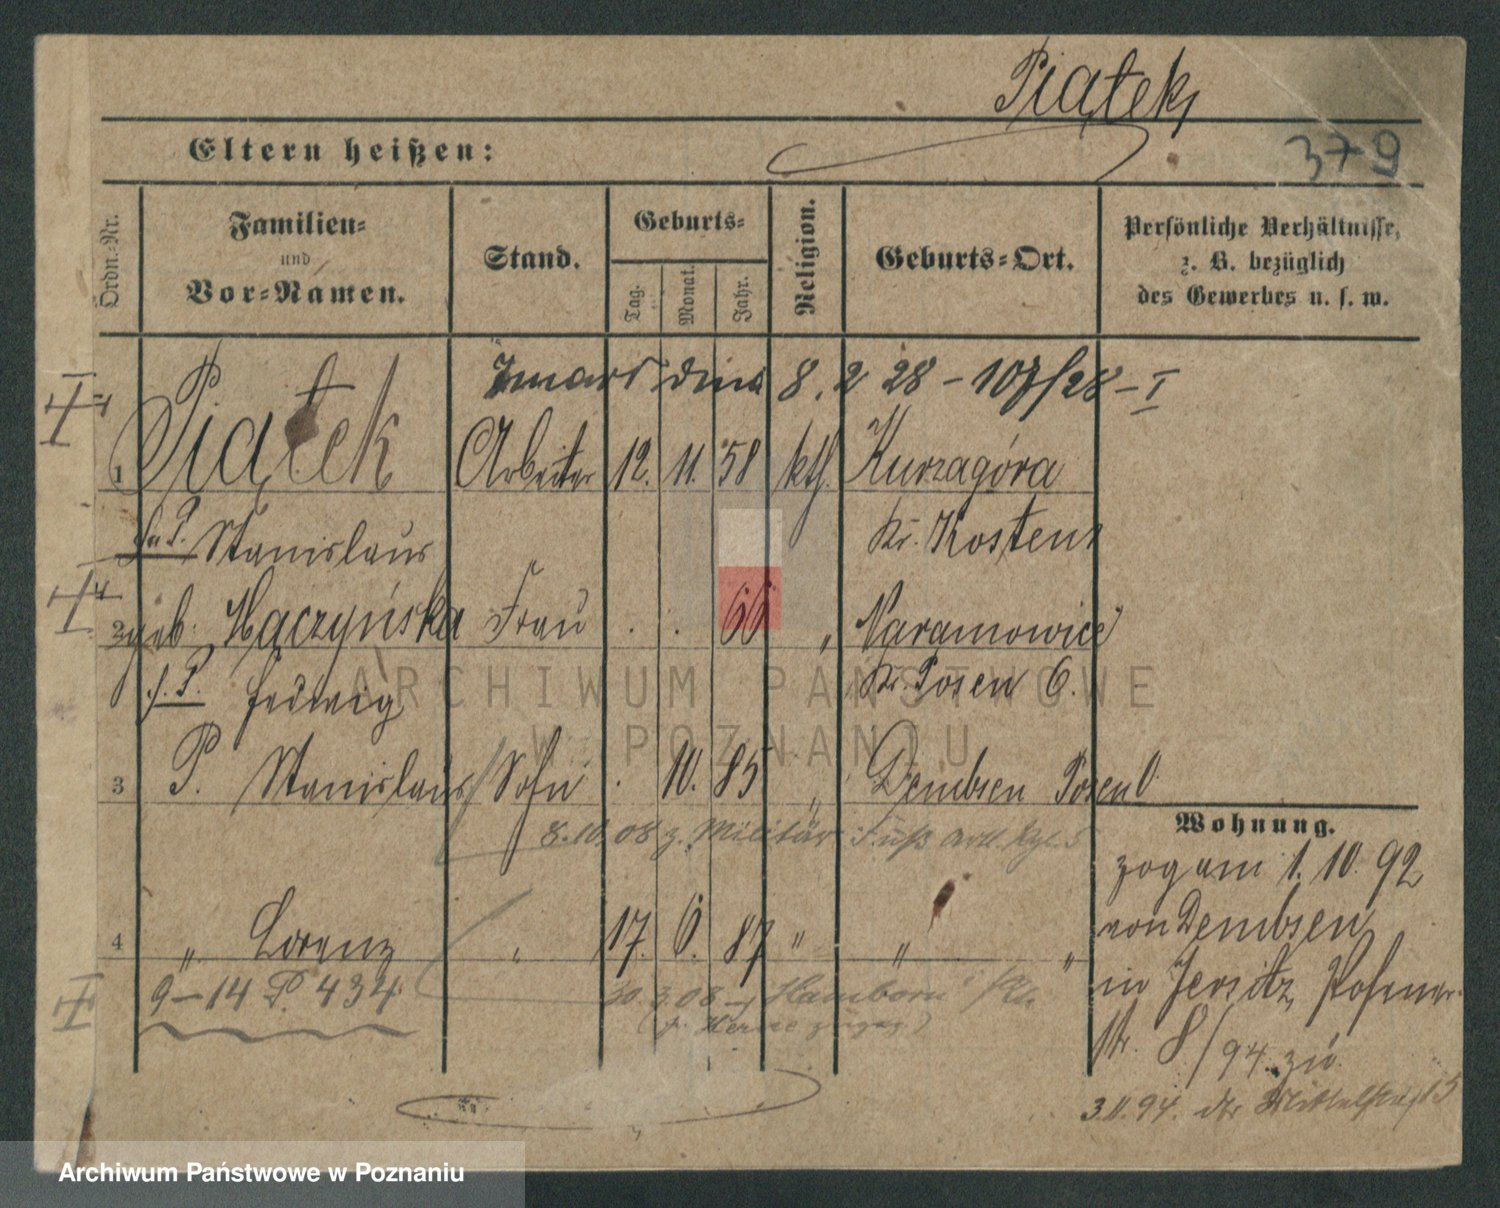 Piątek
379
Eltern heißen:
Ordn.-Nr.
Familien-
und
Vor-Namen.
Stand.
Geburts-
Tag.
Monat.
Jahr.
Religion.
Geburts-Ort.
Persönliche Verhältnisse,
z. B. bezüglich
des Gewerbes u. s. w.
Zmarł dnia 8. 2 28 - 107/28 - I
1 Piątek Arbeiter 12. 11. 58 kth. Kurzagóra
Stanislaus Kr. Kosten
2 geb. Hączyńska Frau . . 66 " Naramowice
Hedwig Kr. Posen O.
3 P. Stanislaus Sohn . 10. 85 " Dembsen Posen O
8.10.08 z. Militär Fuß Artl. Rgt. 5
Wohnung.
zog am 1. 10. 92
von Dembsen
in Jersitz, Posener-
str. 8/94 zu
3.11.94.
4 " Lorenz " 17. 6. 87 " " "
9-14 P 434
30.3.08 Hamborn /Rh.
ARCHIWUM PAŃSTWOWE
W POZNANIU
Archiwum Państwowe w Poznaniu